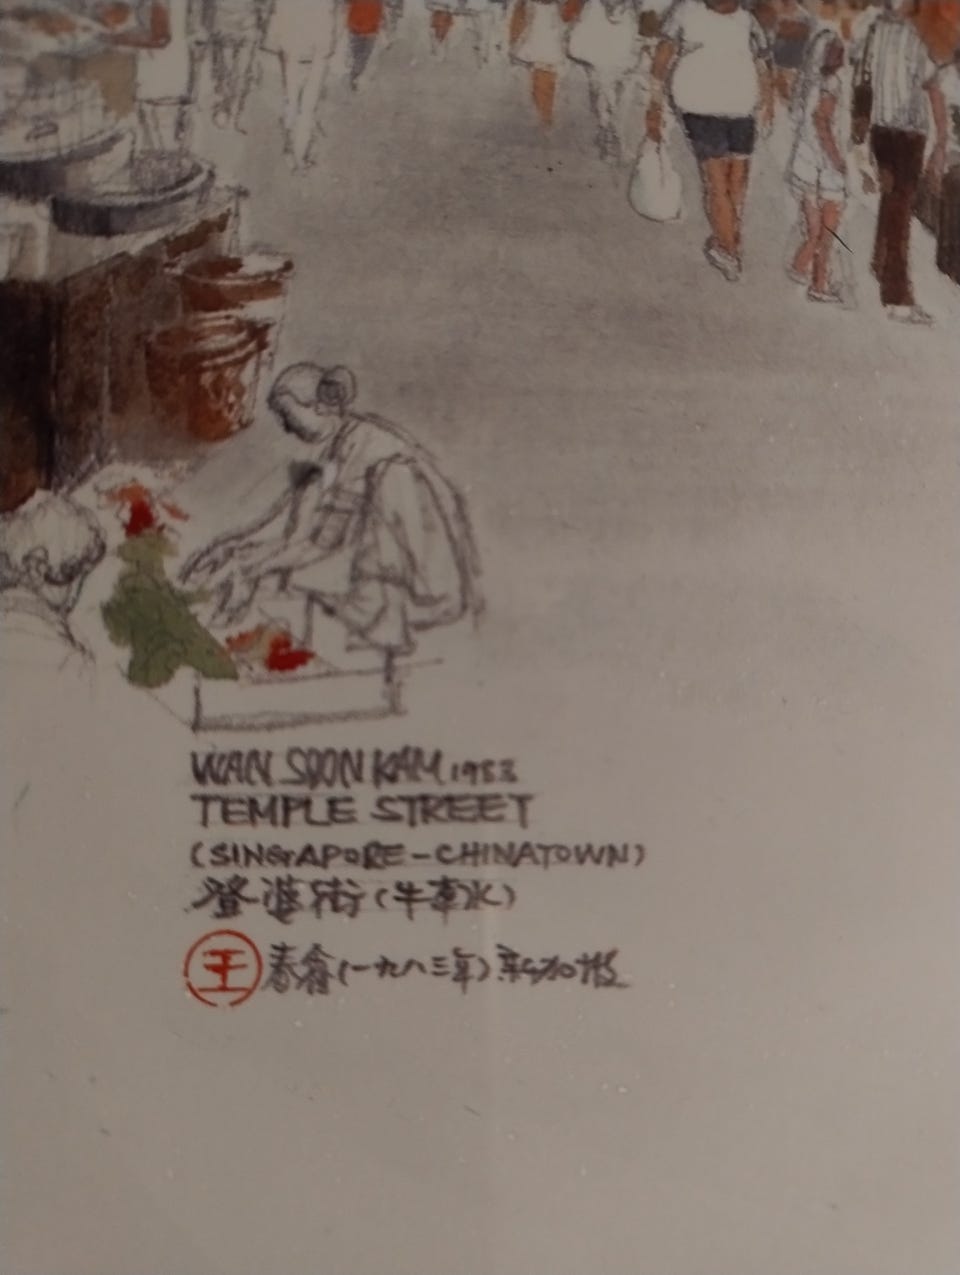 WAN SOON KAM 1983
TEMPLE STREET
(SINGAPORE-CHINATOWN)
登婆街(牛車水)
王 春(一九八三年)新加坡